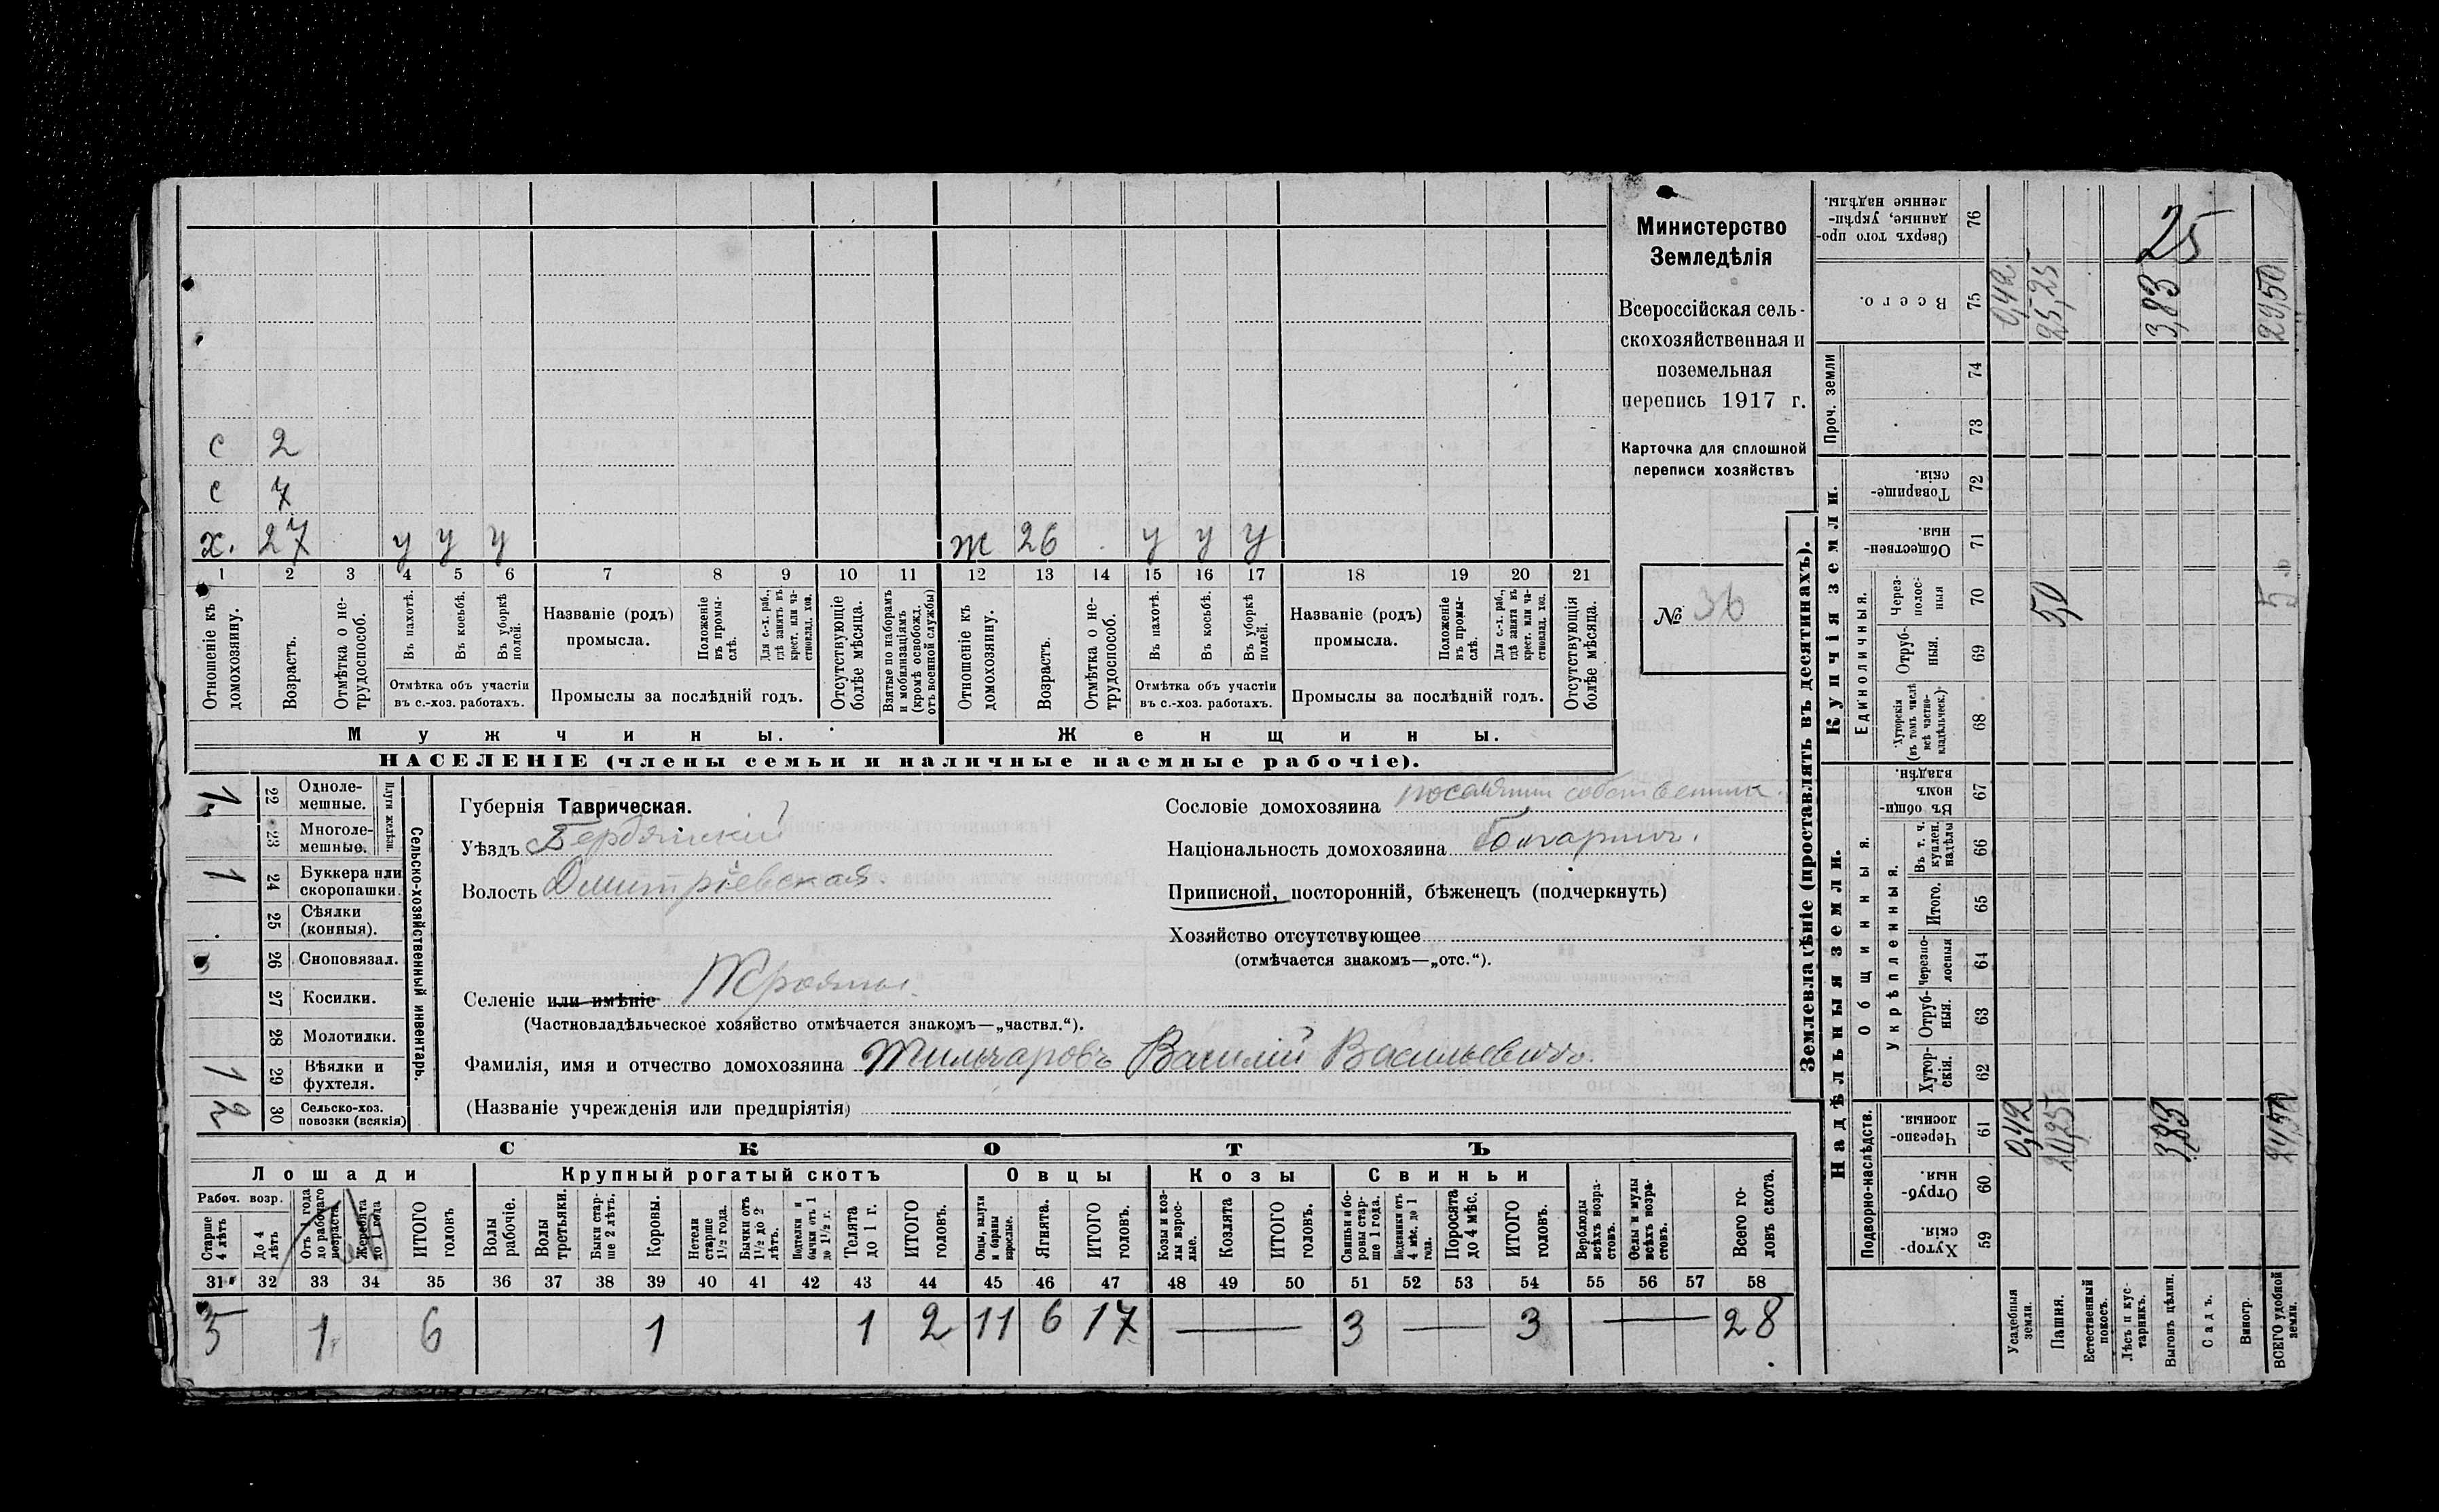 Министерство
Земледѣлія
Всероссійская сель-
скохозяйственная и
поземельная
перепись 1917 г.
Карточка для сплошной
переписи хозяйствъ
№ 36
с 2
с 7
х. 27 у у у ж 26 у у у
1 2 3 4 5 6 7 8 9 10 11 12 13 14 15 16 17 18 19 20 21
Отношеніе къ домохозяину.
Возрастъ.
Отмѣтка о не-трудоспособ.
Въ пахотѣ.
Въ косьбѣ.
Въ уборкѣ полей.
Отмѣтка объ участіи
въ с.-хоз. работахъ.
Названіе (родъ)
промысла.
Положеніе въ промы-слѣ.
Для с.-х. раб., гдѣ занятъ въ крест. или ча-стновлад. хоз.
Промыслы за послѣдній годъ.
Отсутствующіе болѣе мѣсяца.
Взятые по наборамъ и мобилизаціямъ (кромѣ освобожд. отъ военной службы)
Отношеніе къ домохозяину.
Возрастъ.
Отмѣтка о не-трудоспособ.
Въ пахотѣ.
Въ косьбѣ.
Въ уборкѣ полей.
Отмѣтка объ участіи
въ с.-хоз. работахъ.
Названіе (родъ)
промысла.
Положеніе въ промы-слѣ.
Для с.-х. раб., гдѣ занята въ крест. или ча-стновлад. хоз.
Промыслы за послѣдній годъ.
Отсутствующія болѣе мѣсяца.
Мужчины. Женщины.
НАСЕЛЕНІЕ (члены семьи и наличные наемные рабочіе).
Сельско-хозяйственный инвентарь.
Плуги желѣзн.
1 22 Одноле-мешные.
23 Многоле-мешные.
1 24 Буккера или скоропашки.
25 Сѣялки (конныя).
26 Сноповязал.
27 Косилки.
28 Молотилки.
1 29 Вѣялки и фухтеля.
2 30 Сельско-хоз. повозки (всякія)
Губернія Таврическая.
Уѣздъ Бердянскій
Волость Дмитріевская.
Селеніе или имѣніе Трояны.
(Частновладѣльческое хозяйство отмѣчается знакомъ—„частвл.“).
Фамилія, имя и отчество домохозяина Василій Васильевичъ.
(Названіе учрежденія или предпріятія)
Сословіе домохозяина собственник.
Національность домохозяина Болгаринъ.
Приписной, посторонній, бѣженецъ (подчеркнуть)
Хозяйство отсутствующее
(отмѣчается знакомъ—„отс.“).
СКОТЪ
Лошади Крупный рогатый скотъ Овцы Козы Свиньи
Рабоч. возр.
Старше 4 лѣтъ
До 4 лѣтъ
Отъ 1 года до рабочаго возраста.
Жеребята до 1 года
ИТОГО головъ
Волы рабочіе.
Волы третьяки.
Быки стар-ше 2 лѣтъ.
Коровы.
Нетели старше 1½ года.
Бычки отъ 1½ до 2 лѣтъ.
Подтелки и бычки отъ 1 до 1½ г.
Телята до 1 г.
ИТОГО головъ.
Овцы, валухи и бараны взрослые.
Ягнята.
ИТОГО головъ.
Козы и коз-лы взрос-лые.
Козлята
ИТОГО головъ.
Свиньи и бо-ровы стар-ше 1 года.
Подсвинки отъ 4 мѣс. до 1 года.
Поросята до 4 мѣс.
ИТОГО головъ.
Верблюды всѣхъ возра-стовъ.
Ослы и мулы всѣхъ возра-стовъ.
Всего го-ловъ скота.
31 32 33 34 35 36 37 38 39 40 41 42 43 44 45 46 47 48 49 50 51 52 53 54 55 56 57 58
5 1 6 1 1 2 11 6 17 — 3 — 3 — 28
Землевладѣніе (проставлять въ десятинахъ).
Надѣльныя земли. Купчія земли. Проч. земли
Подворно-наслѣдств.
Общинныя.
Укрѣпленныя.
Единоличныя.
Хутор-скія. 59
Отруб-ныя. 60
Черезпо-лосныя. 61
Хутор-скія. 62
Отруб-ныя. 63
Черезпо-лосныя 64
Итого. 65
Въ т. ч. куплен. надѣлы 66
Въ общи-номъ владѣн. 67
Хуторскія (въ томъ числѣ всѣ частно-владѣльческ.) 68
Отруб-ныя. 69
Через-полос-ныя 70
Обществен-ныя. 71
Товарище-скія. 72
73
74
Всего. 75
Сверхъ того про-данные, укрѣп-ленные надѣлы. 76
Усадебныя земли. 0,42 0,42
Пашня. 20,25 5,0 25,25
Естественный покосъ.
Лѣсъ и кус-тарникъ.
Выгонъ цѣлин. 3,83 3,83 25
Садъ.
Виногр.
ВСЕГО удобной земли. 24,50 5 29,50